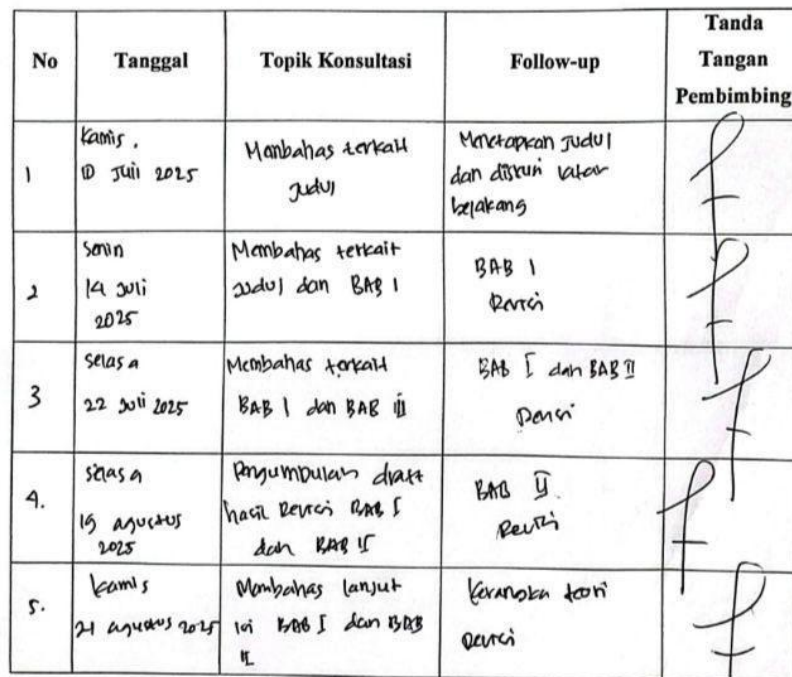 No
Tanggal
Topik Konsultasi
Follow-up
Tanda
Tangan
Pembimbing
1
Kamis,
10 Juli 2025
Membahas terkait
Judul
Menetapkan Judul
dan diskusi latar
belakang
2
Senin
14 Juli
2025
Membahas terkait
Judul dan BAB 1
BAB 1
Revisi
3
Selasa
22 Juli 2025
Membahas terkait
BAB I dan BAB II
BAB I dan BAB II
Revisi
4.
Selasa
19 agustus
2025
Pengumpulan draft
hasil Revisi BAB I
dan BAB II
BAB II
Revisi
5.
Kamis
21 agustus 2025
Membahas lanjut
isi BAB I dan BAB
II
Kerangka teori
Revisi